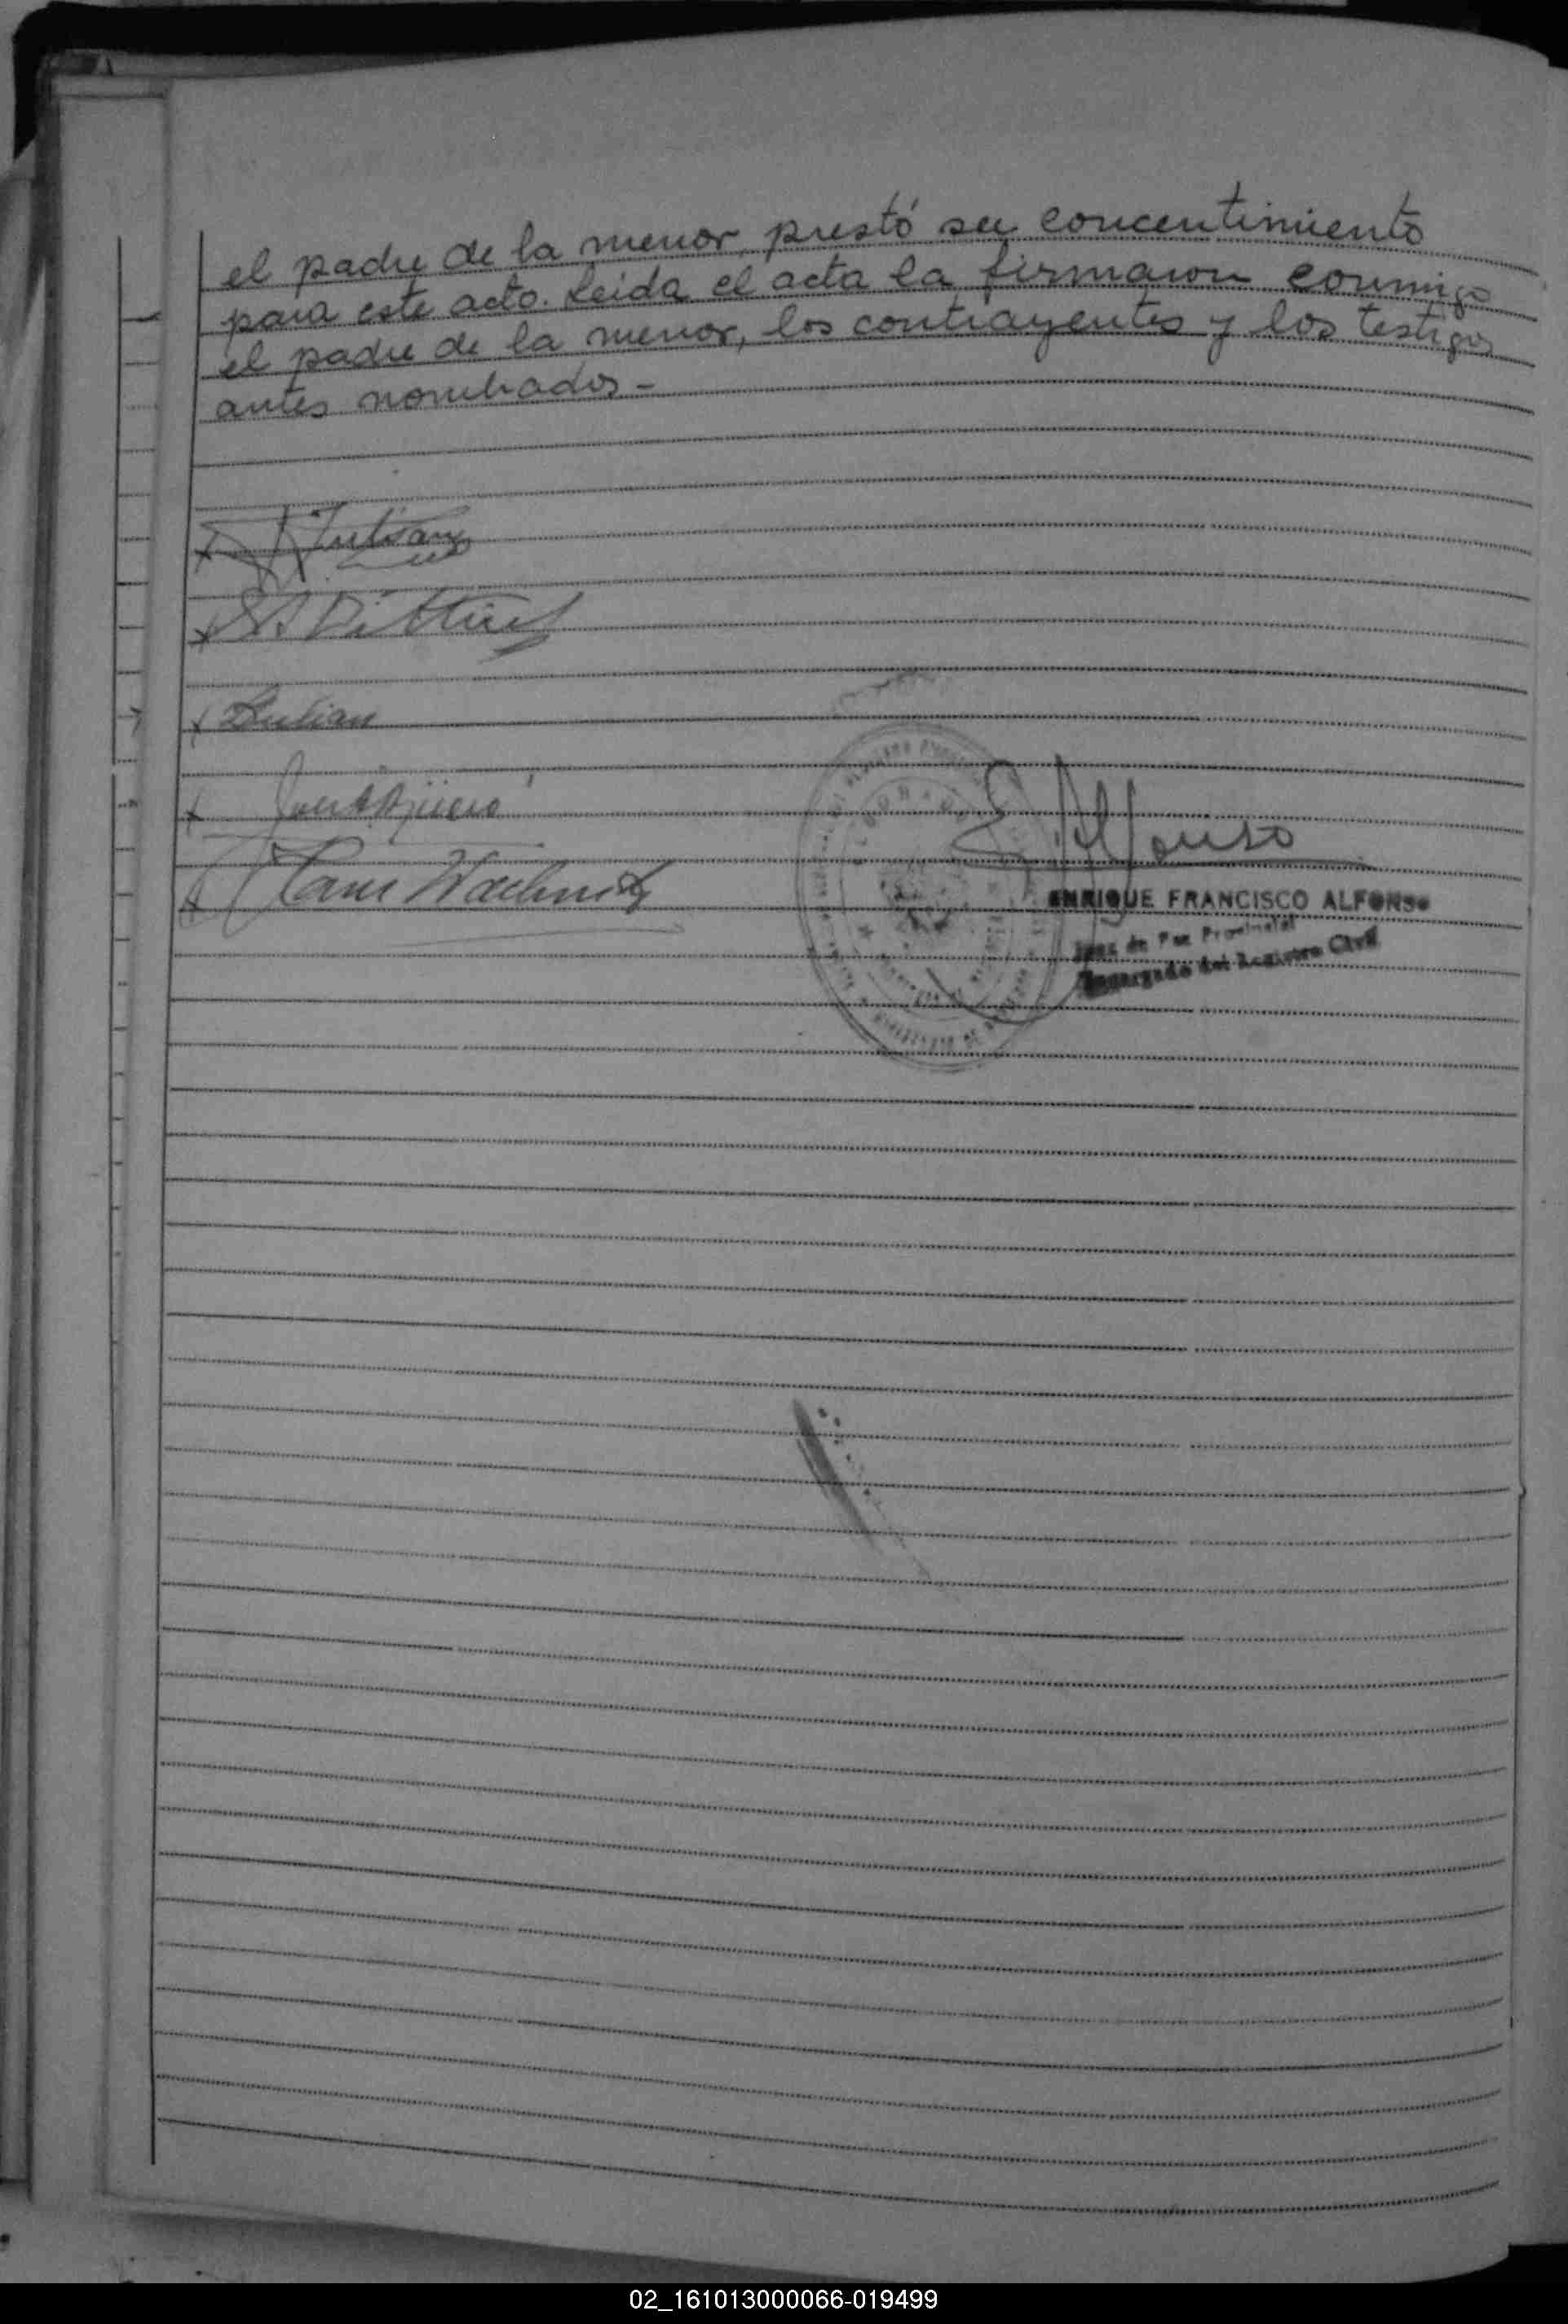 el padre de la menor, prestó su concentimiento
para este acto. Leída el acta la firmaron conmigo
el padre de la menor, los contrayentes y los testigos
antes nombrados -
Hans
E. Alfonso
ENRIQUE FRANCISCO ALFONSO
Juez de Paz Provincial
Encargado del Registro Civil
02_161013000066-019499